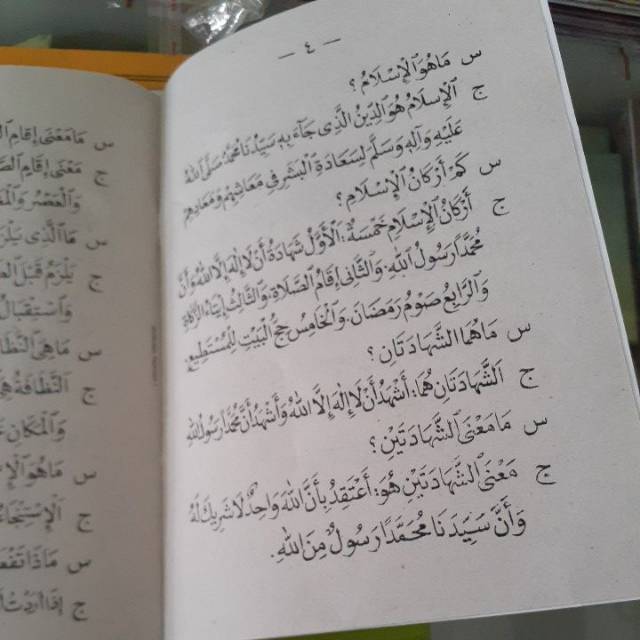 — ٤ —
س مَاهُوَ الْإِسْلَامُ ؟
ج اَلْإِسْلَامُ هُوَ الدِّيْنُ الَّذِى جَآءَ بِهِ سَيِّدُنَا مُحَمَّدٌ صَلَّى اللهُ
عَلَيْهِ وَآلِهِ وَسَلَّمَ لِسَعَادَةِ الْبَشَرِ فِى مَعَاشِهِمْ وَمَعَادِهِمْ
س كَمْ أَرْكَانُ الْإِسْلَامِ ؟
ج أَرْكَانُ الْإِسْلَامِ خَمْسَةٌ: اَلْأَوَّلُ شَهَادَةُ أَنْ لَا إِلٰهَ إِلَّا اللهُ وَأَنَّ
مُحَمَّدًا رَسُولُ اللهِ. وَالثَّانِى إِقَامُ الصَّلَاةِ. وَالثَّالِثُ إِيْتَاءُ الزَّكَاةِ
وَالرَّابِعُ صَوْمُ رَمَضَانَ. وَالْخَامِسُ حَجُّ الْبَيْتِ لِلْمُسْتَطِيعِ.
س مَاهُمَا الشَّهَادَتَانِ ؟
ج اَلشَّهَادَتَانِ هُمَا: أَشْهَدُ أَنْ لَا إِلٰهَ إِلَّا اللهُ وَأَشْهَدُ أَنَّ مُحَمَّدًا رَسُولُ اللهِ
س مَامَعْنَى الشَّهَادَتَيْنِ ؟
ج مَعْنَى الشَّهَادَتَيْنِ هُوَ: أَعْتَقِدُ بِأَنَّ اللهَ وَاحِدٌ لَا شَرِيْكَ لَهُ
وَأَنَّ سَيِّدَنَا مُحَمَّدًا رَسُولٌ مِنَ اللهِ.
س مَا مَعْنَى إِقَامِ
ج مَعْنَى إِقَامِ
وَالْعَصْرُ
س مَا الَّذِى
ج يَلْزَمُ قَبْلَ
وَاسْتِقْبَالُ
س مَا هِىَ
ج اَلنَّظَافَةُ
وَالْمَكَانِ
س مَا هُوَ
ج
س مَاذَا
ج إِذَا